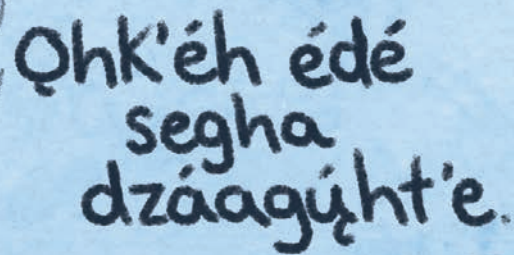 Ǫhk'éh édé
segha
dzáagų́ht'e.